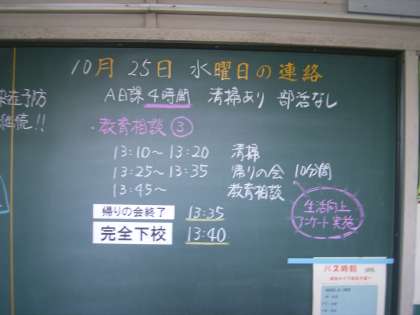 10月 25日 水曜日の連絡
A日課 4時間 清掃あり 部活なし
予防
継続!!
・教育相談 ③
13:10～13:20 清掃
13:25～13:35 帰りの会 10分間
13:45～ 教育相談
生活向上
アンケート実施
帰りの会終了 13:35
完全下校 13:40
バス時刻